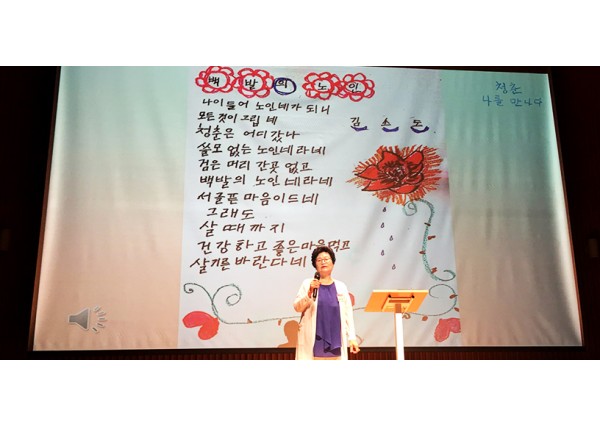 백발의 노인
청춘
나를 만나다
나이들어 노인네가 되니
모든것이 그립네
김 소 도
청춘은 어디갔나
쓸모 없는 노인네라네
검은 머리 간곳 없고
백발의 노인네라네
서글픈 마음이드네
그래도
살 때 까지
건강하고 좋은마음먹고
살기를 바란다네